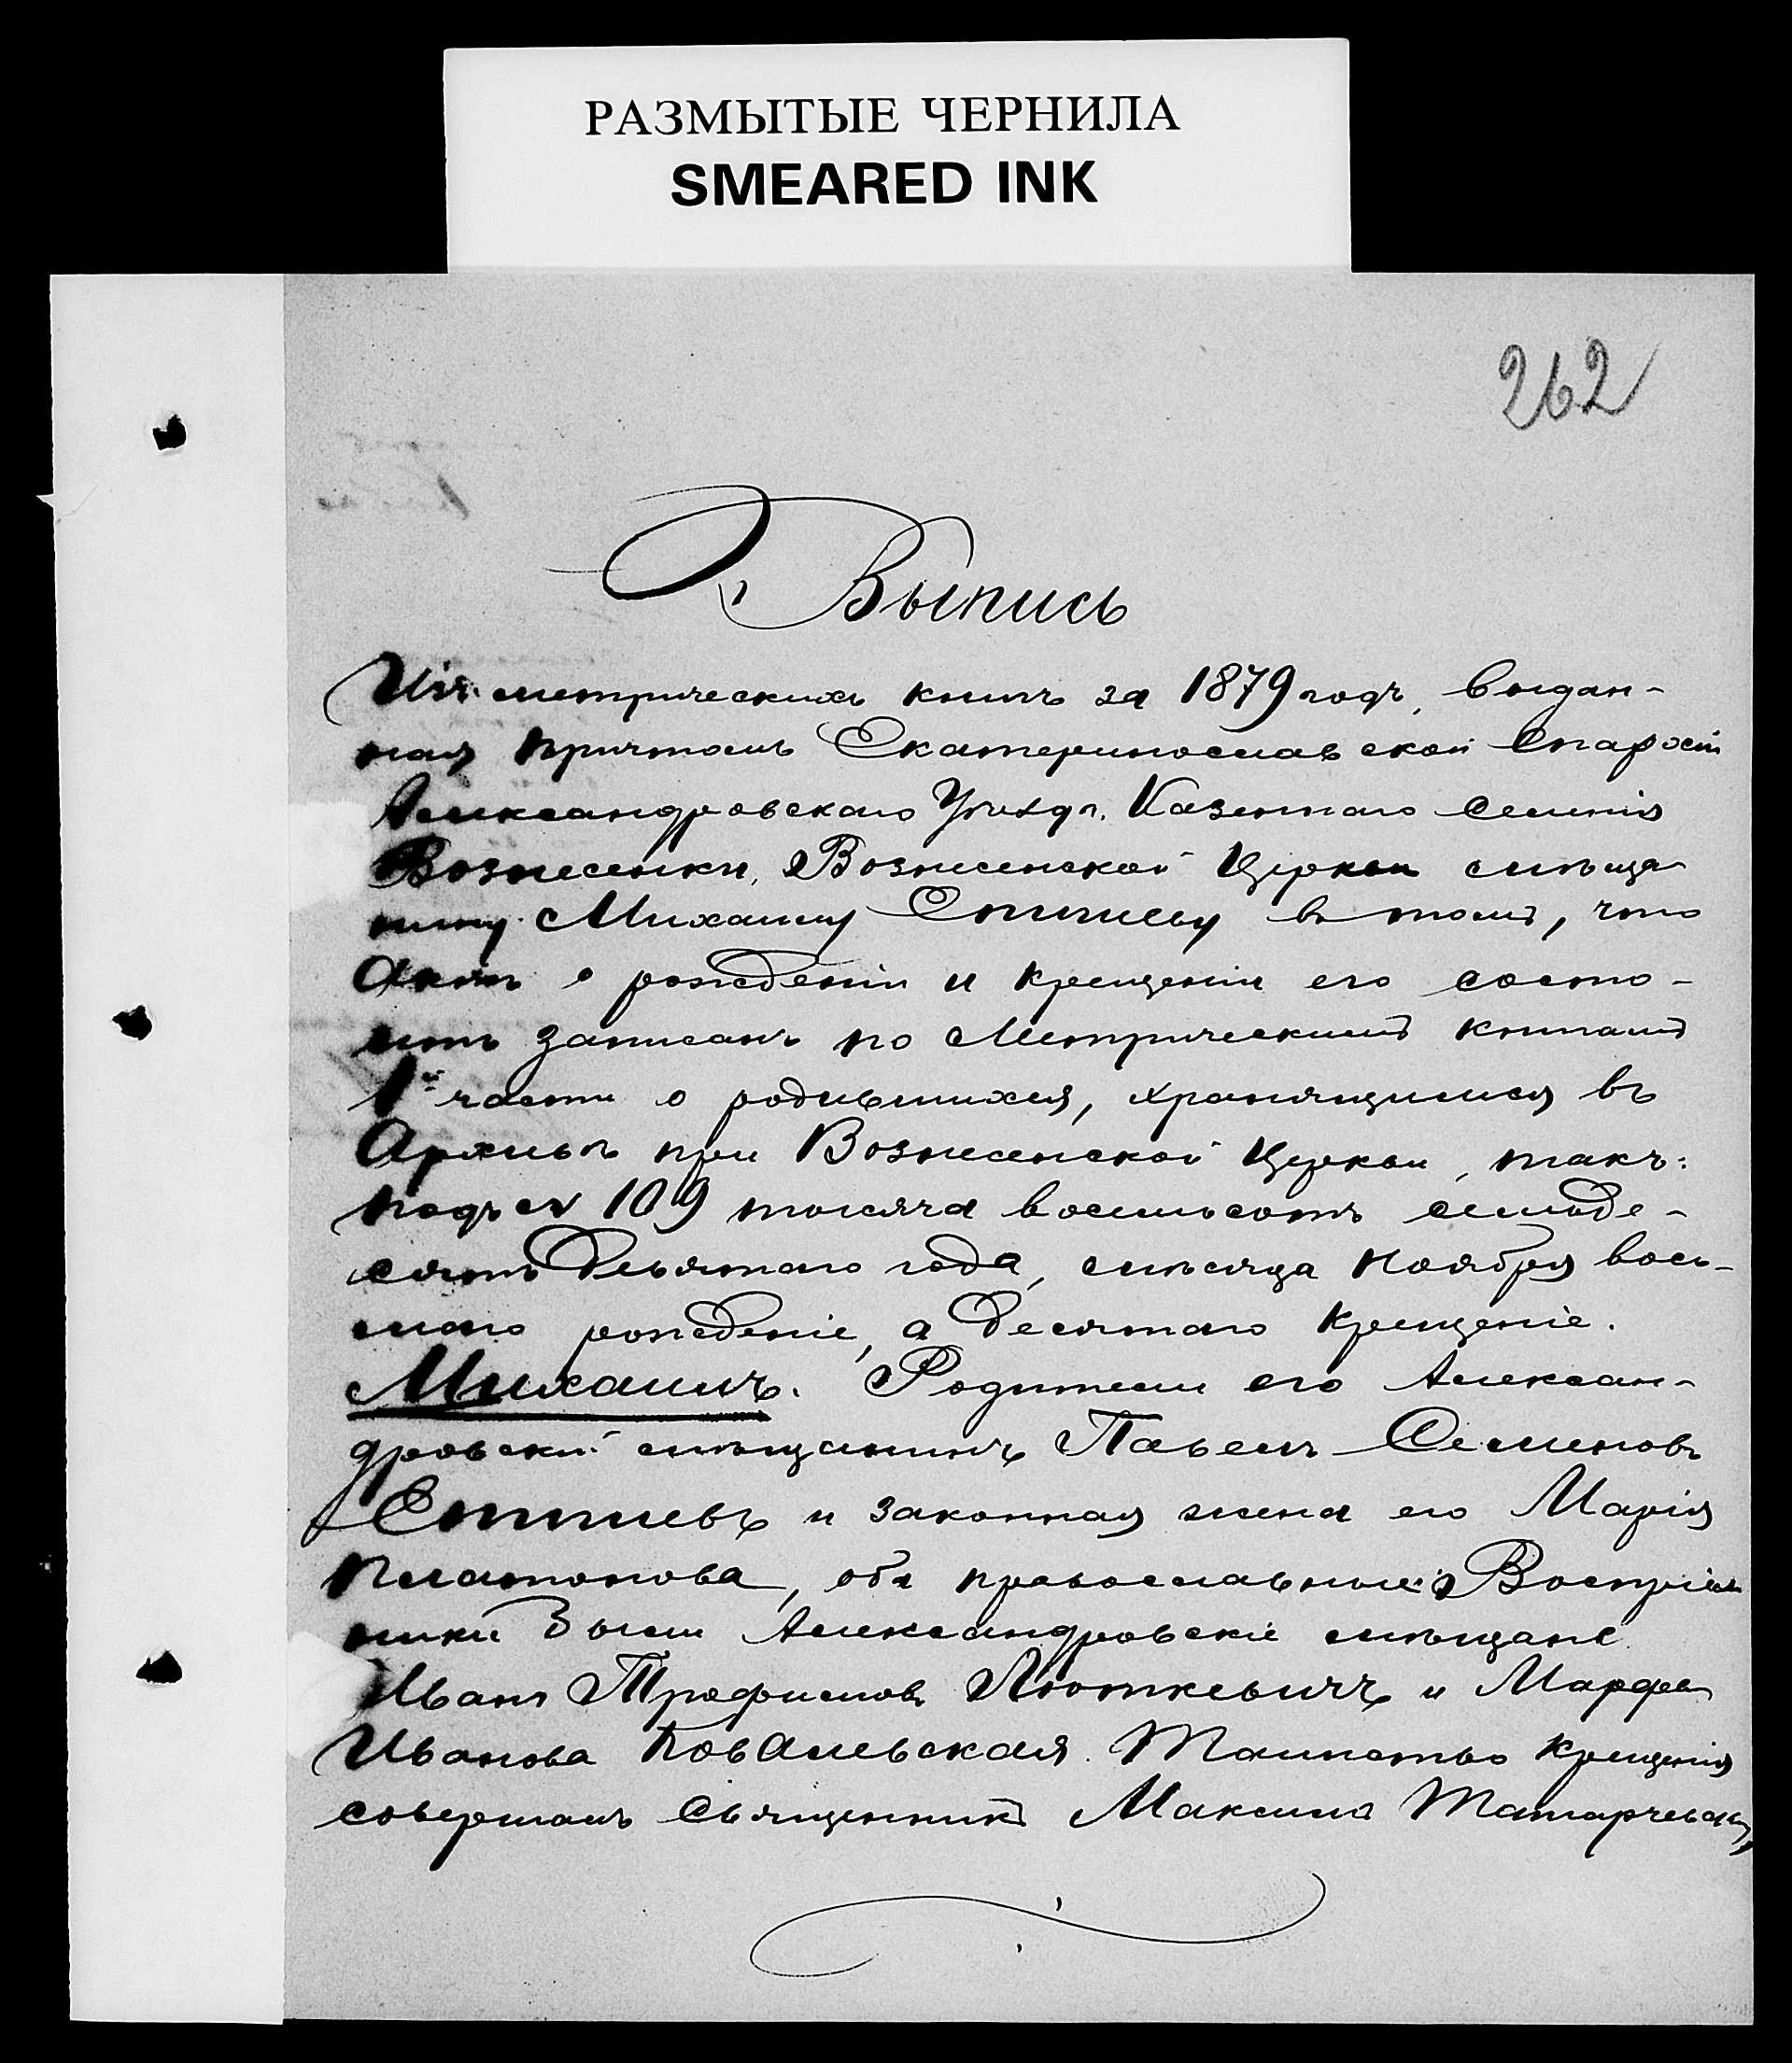 РАЗМЫТЫЕ ЧЕРНИЛА
SMEARED INK
262
Выпись
Изъ метрическихъ книгъ за 1879 годъ, выдан-
ная причтомъ Екатеринославской Епархіи
Александровскаго Уѣзда. Казеннаго Селенія
Вознесенки, Вознесенской Церкви мѣща
нину Михаилу в томъ, что
Актъ о рожденіи и крещеніи его состо-
итъ записанъ по Метрическимъ книгамъ
1й части о родившихся, хранящимися въ
Архивѣ при Вознесенской Церкви, такъ:
подъ № 109 тысяча восемьсотъ семьде-
сятъ девятаго года, мѣсяца Ноября вось-
маго рожденіе, а десятаго крещеніе.
Михаилъ. Родители его Алексан-
дровскій мѣщанинъ Павелъ Семеновъ
и законная жена его Марія
Платонова, оба православные. Воспріем
ники были Александровскіе мѣщане
Иванъ Трофимовъ Люткевичъ и Марфа
Иванова Ковалевская. Таинство крещенія
совершалъ Священникъ Максимъ